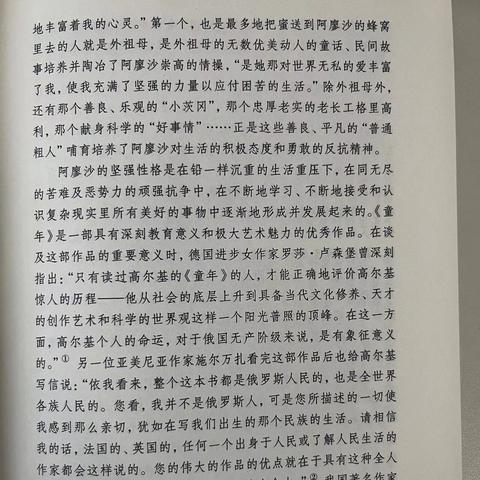 地丰富着我的心灵。”第一个，也是最多地把蜜送到阿廖沙的蜂窝
里去的人就是外祖母，是外祖母的无数优美动人的童话、民间故
事培养并陶冶了阿廖沙崇高的情操，“是她那对世界无私的爱丰富
了我，使我充满了坚强的力量以应付困苦的生活。”除外祖母外，
还有那个善良、乐观的“小茨冈”，那个忠厚老实的老长工格里高
利，那个献身科学的“好事情”……正是这些善良、平凡的“普通
粗人”哺育培养了阿廖沙的积极态度和勇敢的反抗精神。
阿廖沙的坚强性格是在铅一样沉重的生活重压下，在同无尽
的苦难及恶势力的顽强抗争中，在不断地学习、不断地接受和认
识复杂现实里所有美好的事物中逐渐地形成并发展起来的。《童
年》是一部具有深刻教育意义和极大艺术魅力的优秀作品。在谈
及这部作品的重要意义时，德国进步女作家罗莎·卢森堡曾深刻
指出：“只有读过高尔基的《童年》的人，才能正确地评价高尔基
惊人的历程——他从社会的底层上升到具备当代文化修养、天才
的创作艺术和科学的世界观这样一个阳光普照的顶峰。在这一方
面，高尔基个人的命运，对于俄国无产阶级来说，是有象征意义
的。”① 另一位亚美尼亚作家施尔万扎看完这部作品后也给高尔基
写信说：“依我看来，整个这本书都是俄罗斯人民的，也是全世界
各族人民的。您看，我并不是俄罗斯人，可是您所描述的一切使
我感到那么亲切，犹如在写我们出生的那个民族的生活。请相信
我的话，法国的、英国的，任何一个出身于人民或了解人民生活的
作家都会这样说的。您的伟大的作品的优点就在于具有这种全人
②我国著名作家